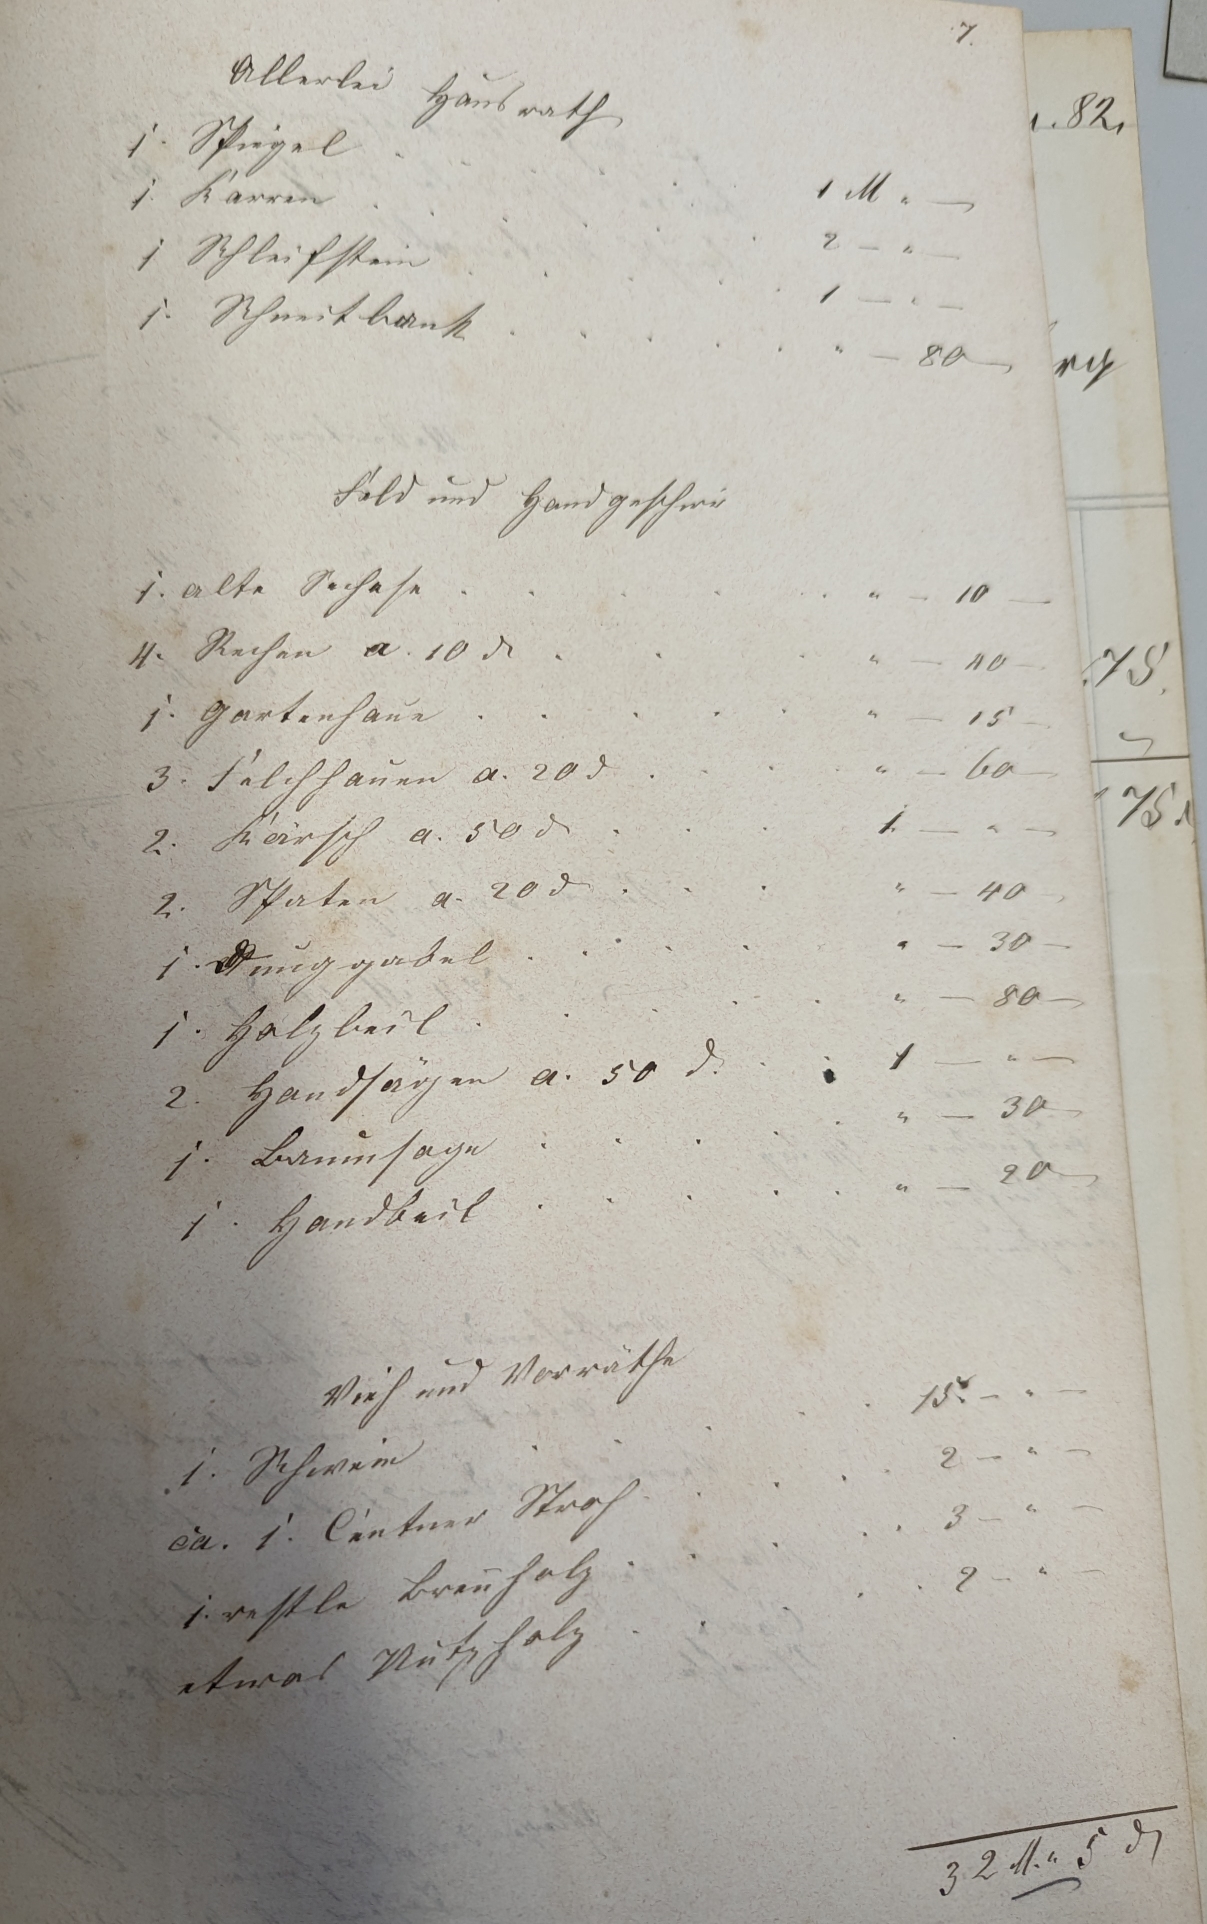 7.
Allerlei Hausrath
1. Spiegel . . . . . 1 M " —
1. Karren . . . . . 2 — " —
1 Schleifstein . . . . . 1 — " —
1. Schneitbank . . . . . " — 80 —
Feld und Handgeschir
1. alte Sechase . . . . . " — 10 —
4. Rechen a. 10 d . . . " — 40 —
1. Gartenhaue . . . . . " — 15 —
3. Felchhauen a. 20 d . . . . " — 60 —
2. Kärsch a. 50 d . . . 1. — " —
2. Spaten a. 20 d . . . " — 40 —
1. Dunggabel . . . . . " — 30 —
1. Holzbeil . . . . . " — 80 —
2. Handsägen a. 50 d. . . 1 — " —
1. Baumsage . . . . . " — 30 —
1. Handbeil . . . . . " — 20 —
Vieh und Vorräthe
1. Schwein . . . . 15. — " —
ca. 1. Centner Stroh . . . . 2 — " —
1. restle Brennholz . . . . . 3 — " —
etwas Nutzholz . . . . 2 — " —
32 M. " 5 d
82.
75.
75